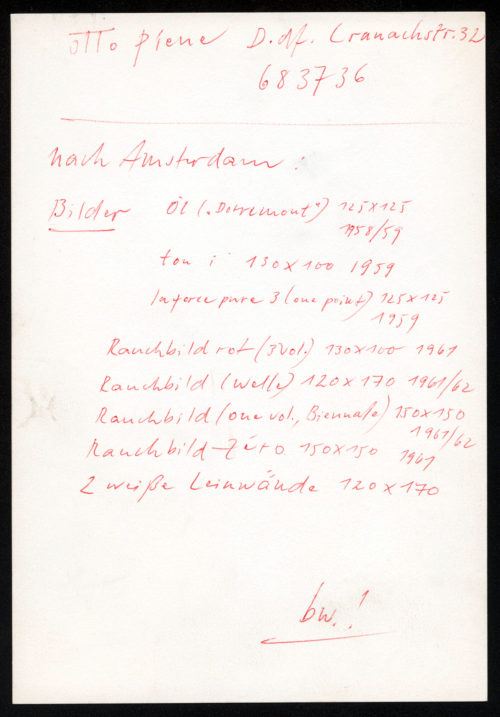 otto piene D.df. Cranachstr. 32
683736
nach Amsterdam:
Bilder Öl („Dotremont") 125x125
1958/59
ton i 130x100 1959
la force pure 3 (one point) 125x125
1959
Rauchbild rot (3 vol.) 130x100 1961
Rauchbild (Welle) 120x170 1961/62
Rauchbild (one vol., Biennale) 150x150
1961/62
Rauchbild-Zéro 150x150 1961
2 weiße Leinwände 120x170
bw.!